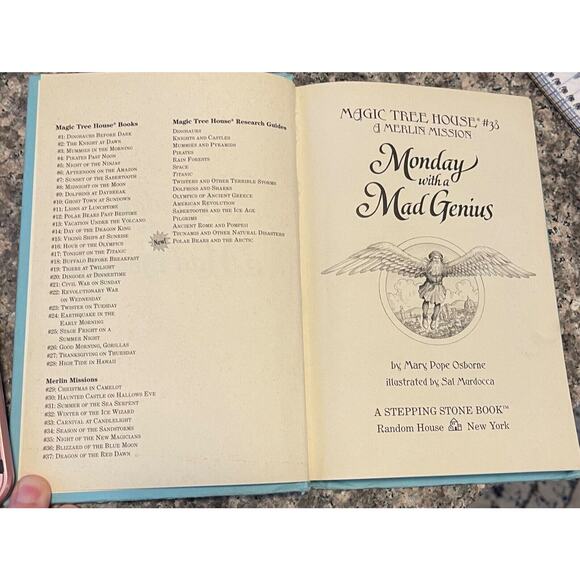 Magic Tree House® Books
#1: Dinosaurs Before Dark
#2: The Knight at Dawn
#3: Mummies in the Morning
#4: Pirates Past Noon
#5: Night of the Ninjas
#6: Afternoon on the Amazon
#7: Sunset of the Sabertooth
#8: Midnight on the Moon
#9: Dolphins at Daybreak
#10: Ghost Town at Sundown
#11: Lions at Lunchtime
#12: Polar Bears Past Bedtime
#13: Vacation Under the Volcano
#14: Day of the Dragon King
#15: Viking Ships at Sunrise
#16: Hour of the Olympics
#17: Tonight on the Titanic
#18: Buffalo Before Breakfast
#19: Tigers at Twilight
#20: Dingoes at Dinnertime
#21: Civil War on Sunday
#22: Revolutionary War
on Wednesday
#23: Twister on Tuesday
#24: Earthquake in the
Early Morning
#25: Stage Fright on a
Summer Night
#26: Good Morning, Gorillas
#27: Thanksgiving on Thursday
#28: High Tide in Hawaii
Merlin Missions
#29: Christmas in Camelot
#30: Haunted Castle on Hallows Eve
#31: Summer of the Sea Serpent
#32: Winter of the Ice Wizard
#33: Carnival at Candlelight
#34: Season of the Sandstorms
#35: Night of the New Magicians
#36: Blizzard of the Blue Moon
#37: Dragon of the Red Dawn
Magic Tree House® Research Guides
Dinosaurs
Knights and Castles
Mummies and Pyramids
Pirates
Rain Forests
Space
Titanic
Twisters and Other Terrible Storms
Dolphins and Sharks
Olympics of Ancient Greece
American Revolution
Sabertooths and the Ice Age
Pilgrims
Ancient Rome and Pompeii
Tsunamis and Other Natural Disasters
New! Polar Bears and the Arctic
MAGIC TREE HOUSE® #38
A MERLIN MISSION
Monday
with a
Mad Genius
by Mary Pope Osborne
illustrated by Sal Murdocca
A STEPPING STONE BOOK™
Random House New York